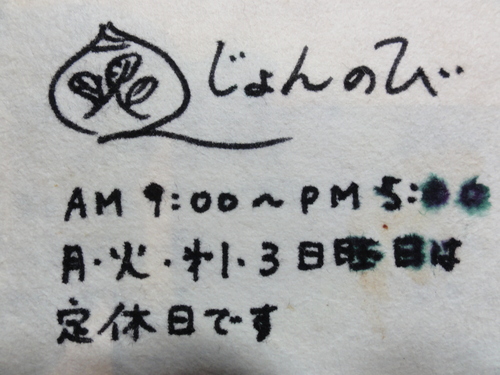 じょんのび
AM 9:00〜PM 5:00
月・火・第1・3日曜日は
定休日です